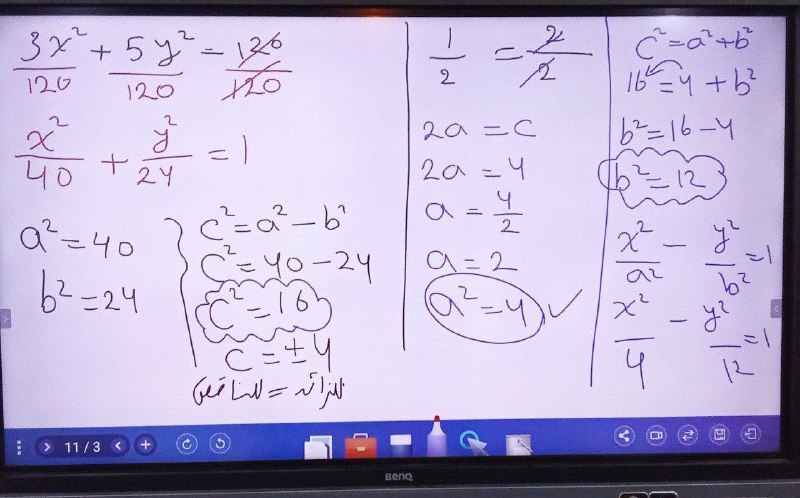 3x² + 5y² = 120
120 120 120
x² + y² = 1
40 24
a² = 40
b² = 24
c² = a² - b²
c² = 40 - 24
c² = 16
c = ± 4
للزائد = للناقص
1 = 2
2 2
2a = c
2a = 4
a = 4
2
a = 2
a² = 4 ✓
c² = a² + b²
16 = 4 + b²
b² = 16 - 4
b² = 12
x² - y² = 1
a² b²
x² - y² = 1
4 12
11 / 3
BenQ